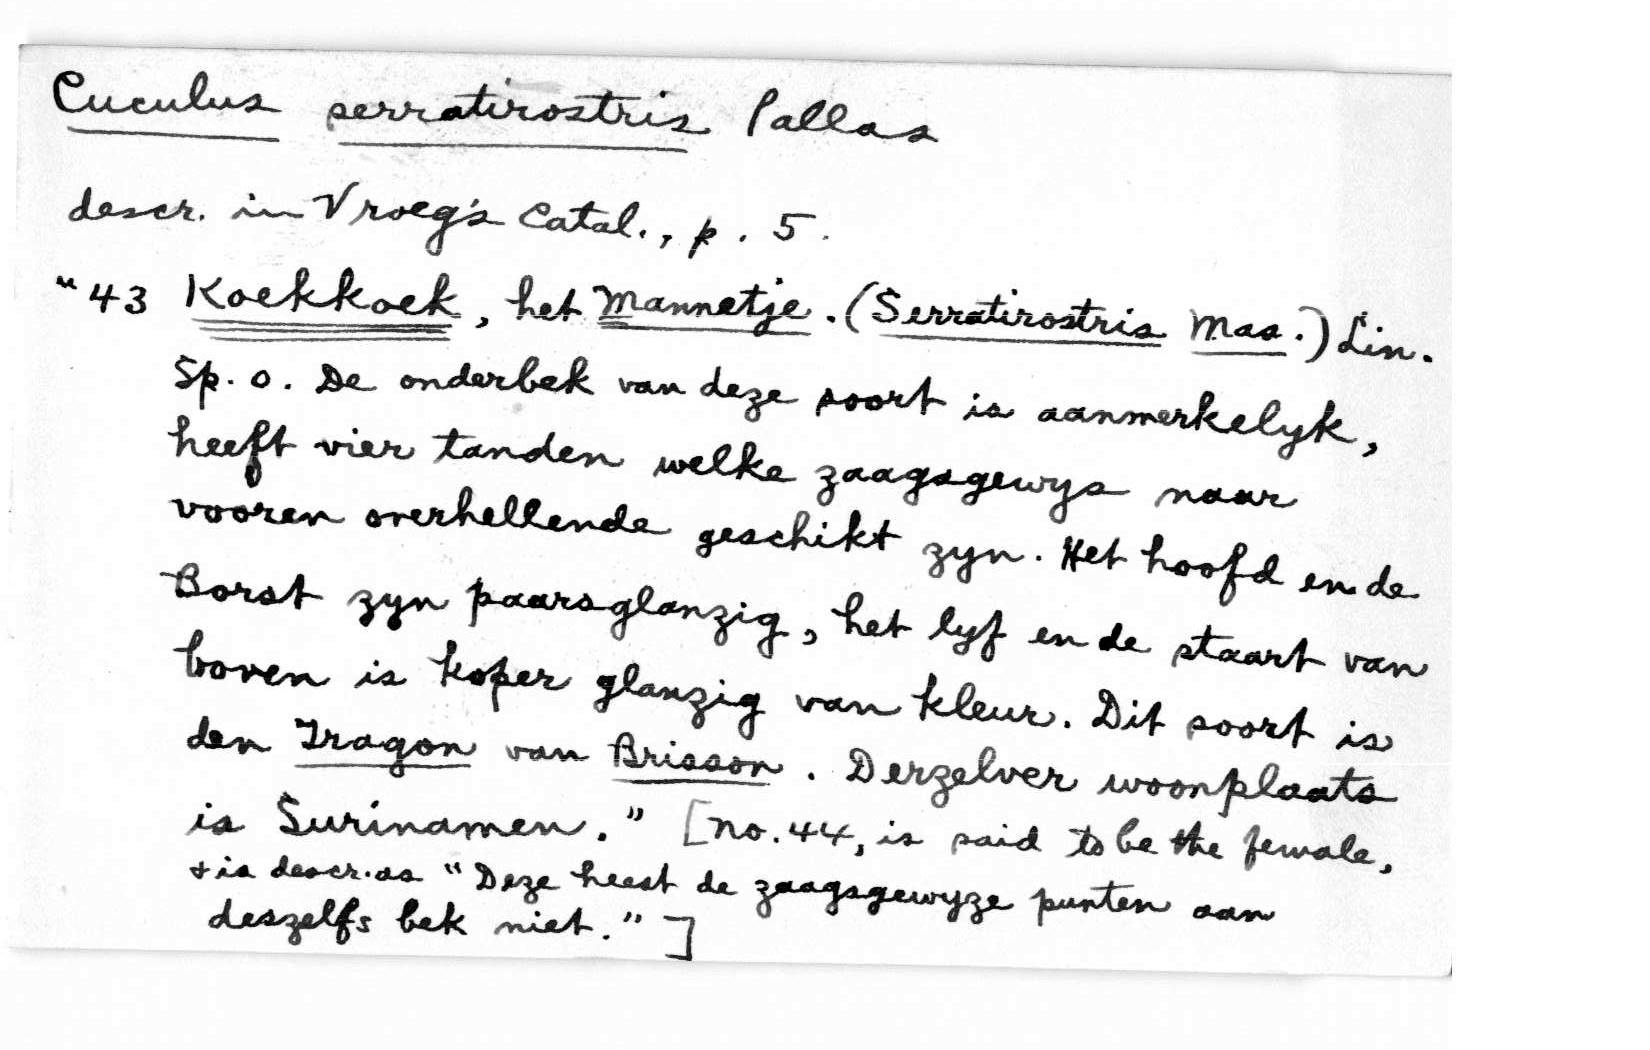 Cuculus serratirostris Pallas
descr. in Vroeg's Catal., p. 5.
"43 Koekkoek, het Mannetje. (Serratirostris Mas.) Lin.
Sp. o. De onderbek van deze soort is aanmerkelyk,
heeft vier tanden welke zaagsgewys naar
vooren overhellende geschikt zyn. Het hoofd en de
Borst zyn paarsglanzig, het lyf en de staart van
boven is koper glanzig van kleur. Dit soort is
den Tragon van Brisson. Derzelver woonplaats
is Surinamen." [No. 44, is said to be the female,
+ is descr. as "Deze heest de zaagsgewyze punten aan
deszelfs bek niet."]